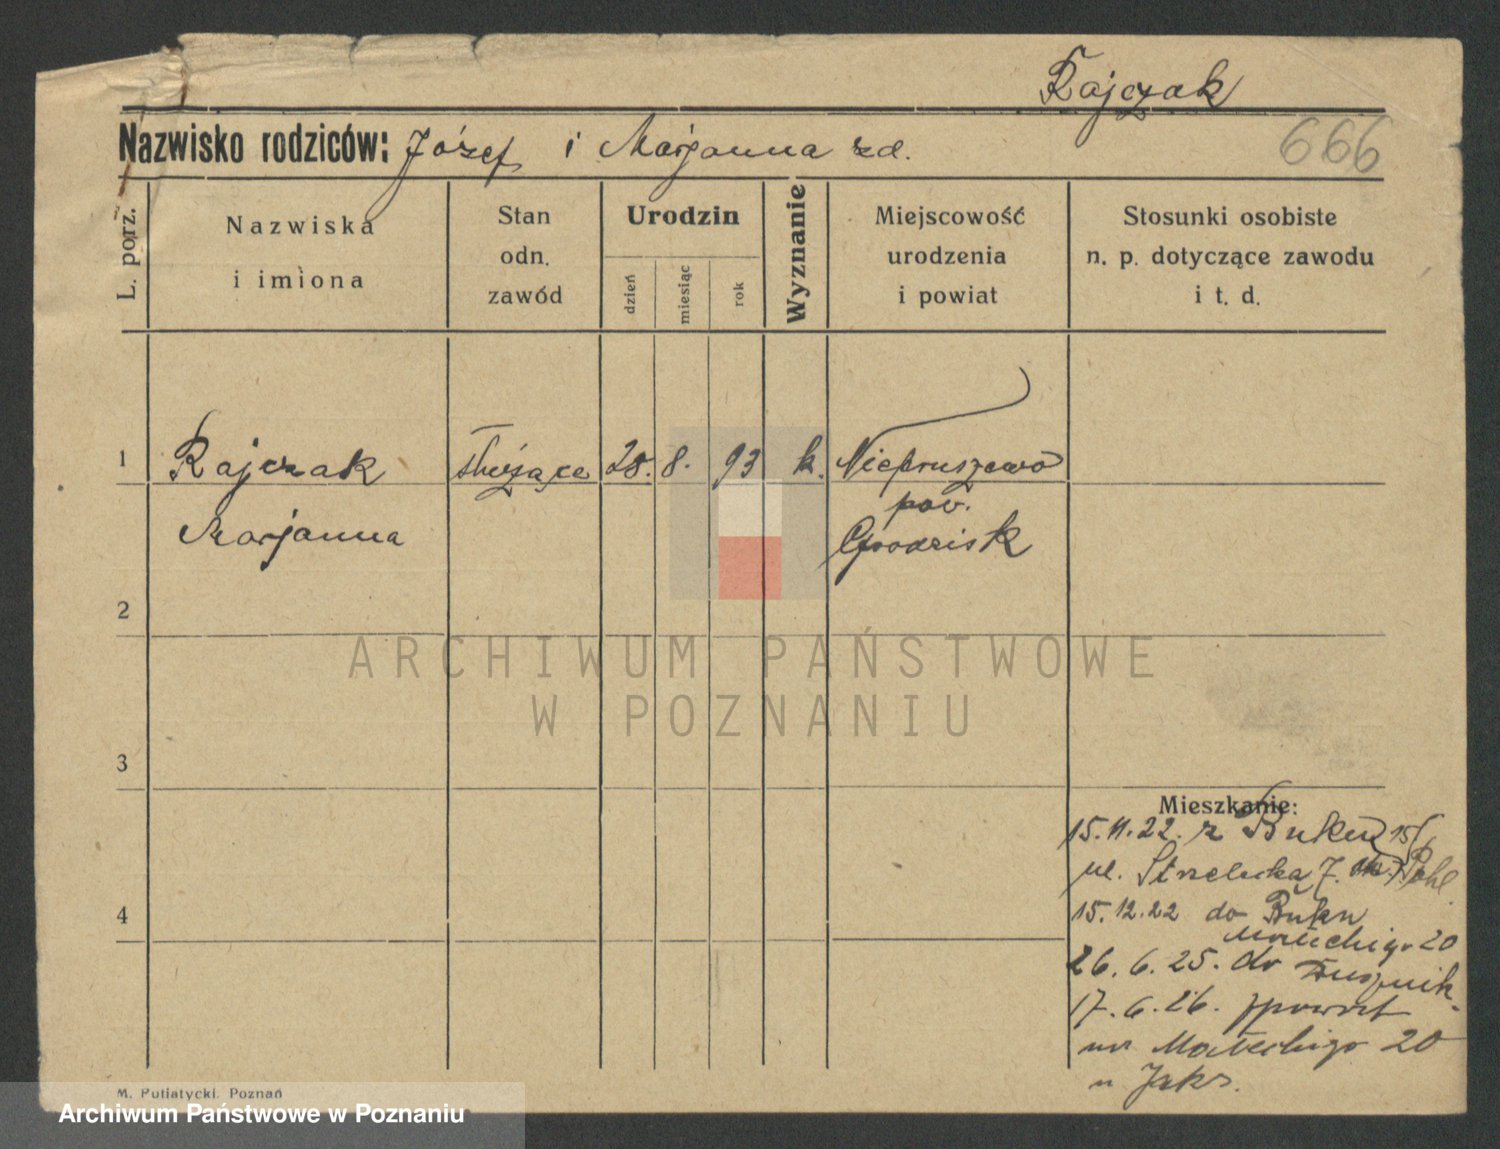 Rajczak
Nazwisko rodziców: Józef i Marjanna zd.
666
L. porz.
Nazwiska
i imiona
Stan
odn.
zawód
Urodzin
dzień
miesiąc
rok
Wyznanie
Miejscowość
urodzenia
i powiat
Stosunki osobiste
n. p. dotyczące zawodu
i t. d.
1 Rajczak służące 28. 8. 93 k. Niepruszewo
Marjanna
pow.
Grodzisk
2
3
4
Mieszkanie:
15.11.22. z Buku
ul. Strzelecka 7.
15.12.22 do Buku
Małeckiego 20
26.6.25. do Dusznik
17.6.26. zpowrot
na Małeckiego 20
u
M. Putiatycki. Poznań
ARCHIWUM PAŃSTWOWE
W POZNANIU
Archiwum Państwowe w Poznaniu